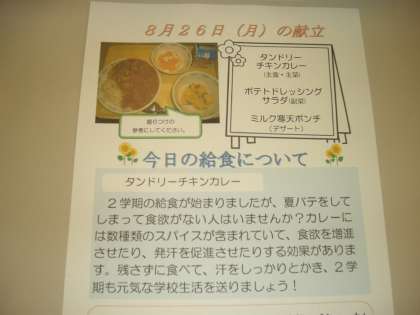 ８月２６日（月）の献立
タンドリー
チキンカレー
(主食・主菜)
ポテトドレッシング
サラダ(副菜)
ミルク寒天ポンチ
(デザート)
盛りつけの
参考にしてください。
今日の給食について
タンドリーチキンカレー
２学期の給食が始まりましたが、夏バテをして
しまって食欲がない人はいませんか？カレーに
は数種類のスパイスが含まれていて、食欲を増進
させたり、発汗を促進させたりする効果がありま
す。残さずに食べて、汗をしっかりとかき、２学
期も元気な学校生活を送りましょう！